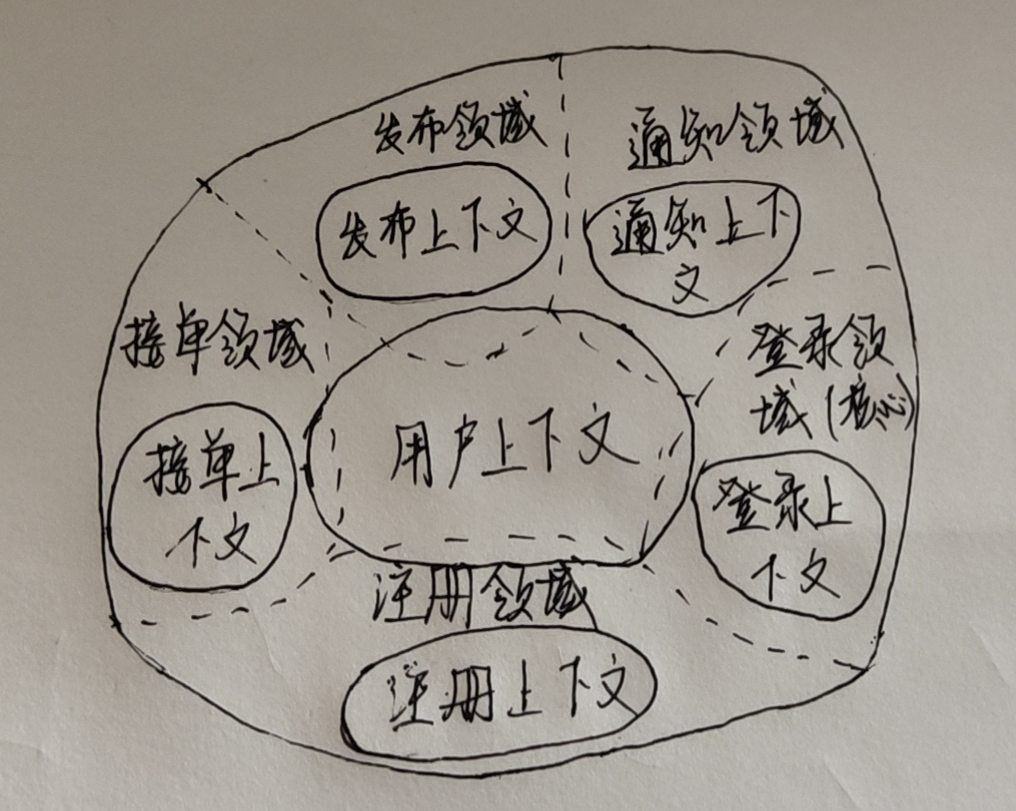 发布领域
通知领域
发布上下文
通知上下
文
接单领域
登录领
域(核心)
接单上
下文
用户上下文
登录上
下文
注册领域
注册上下文